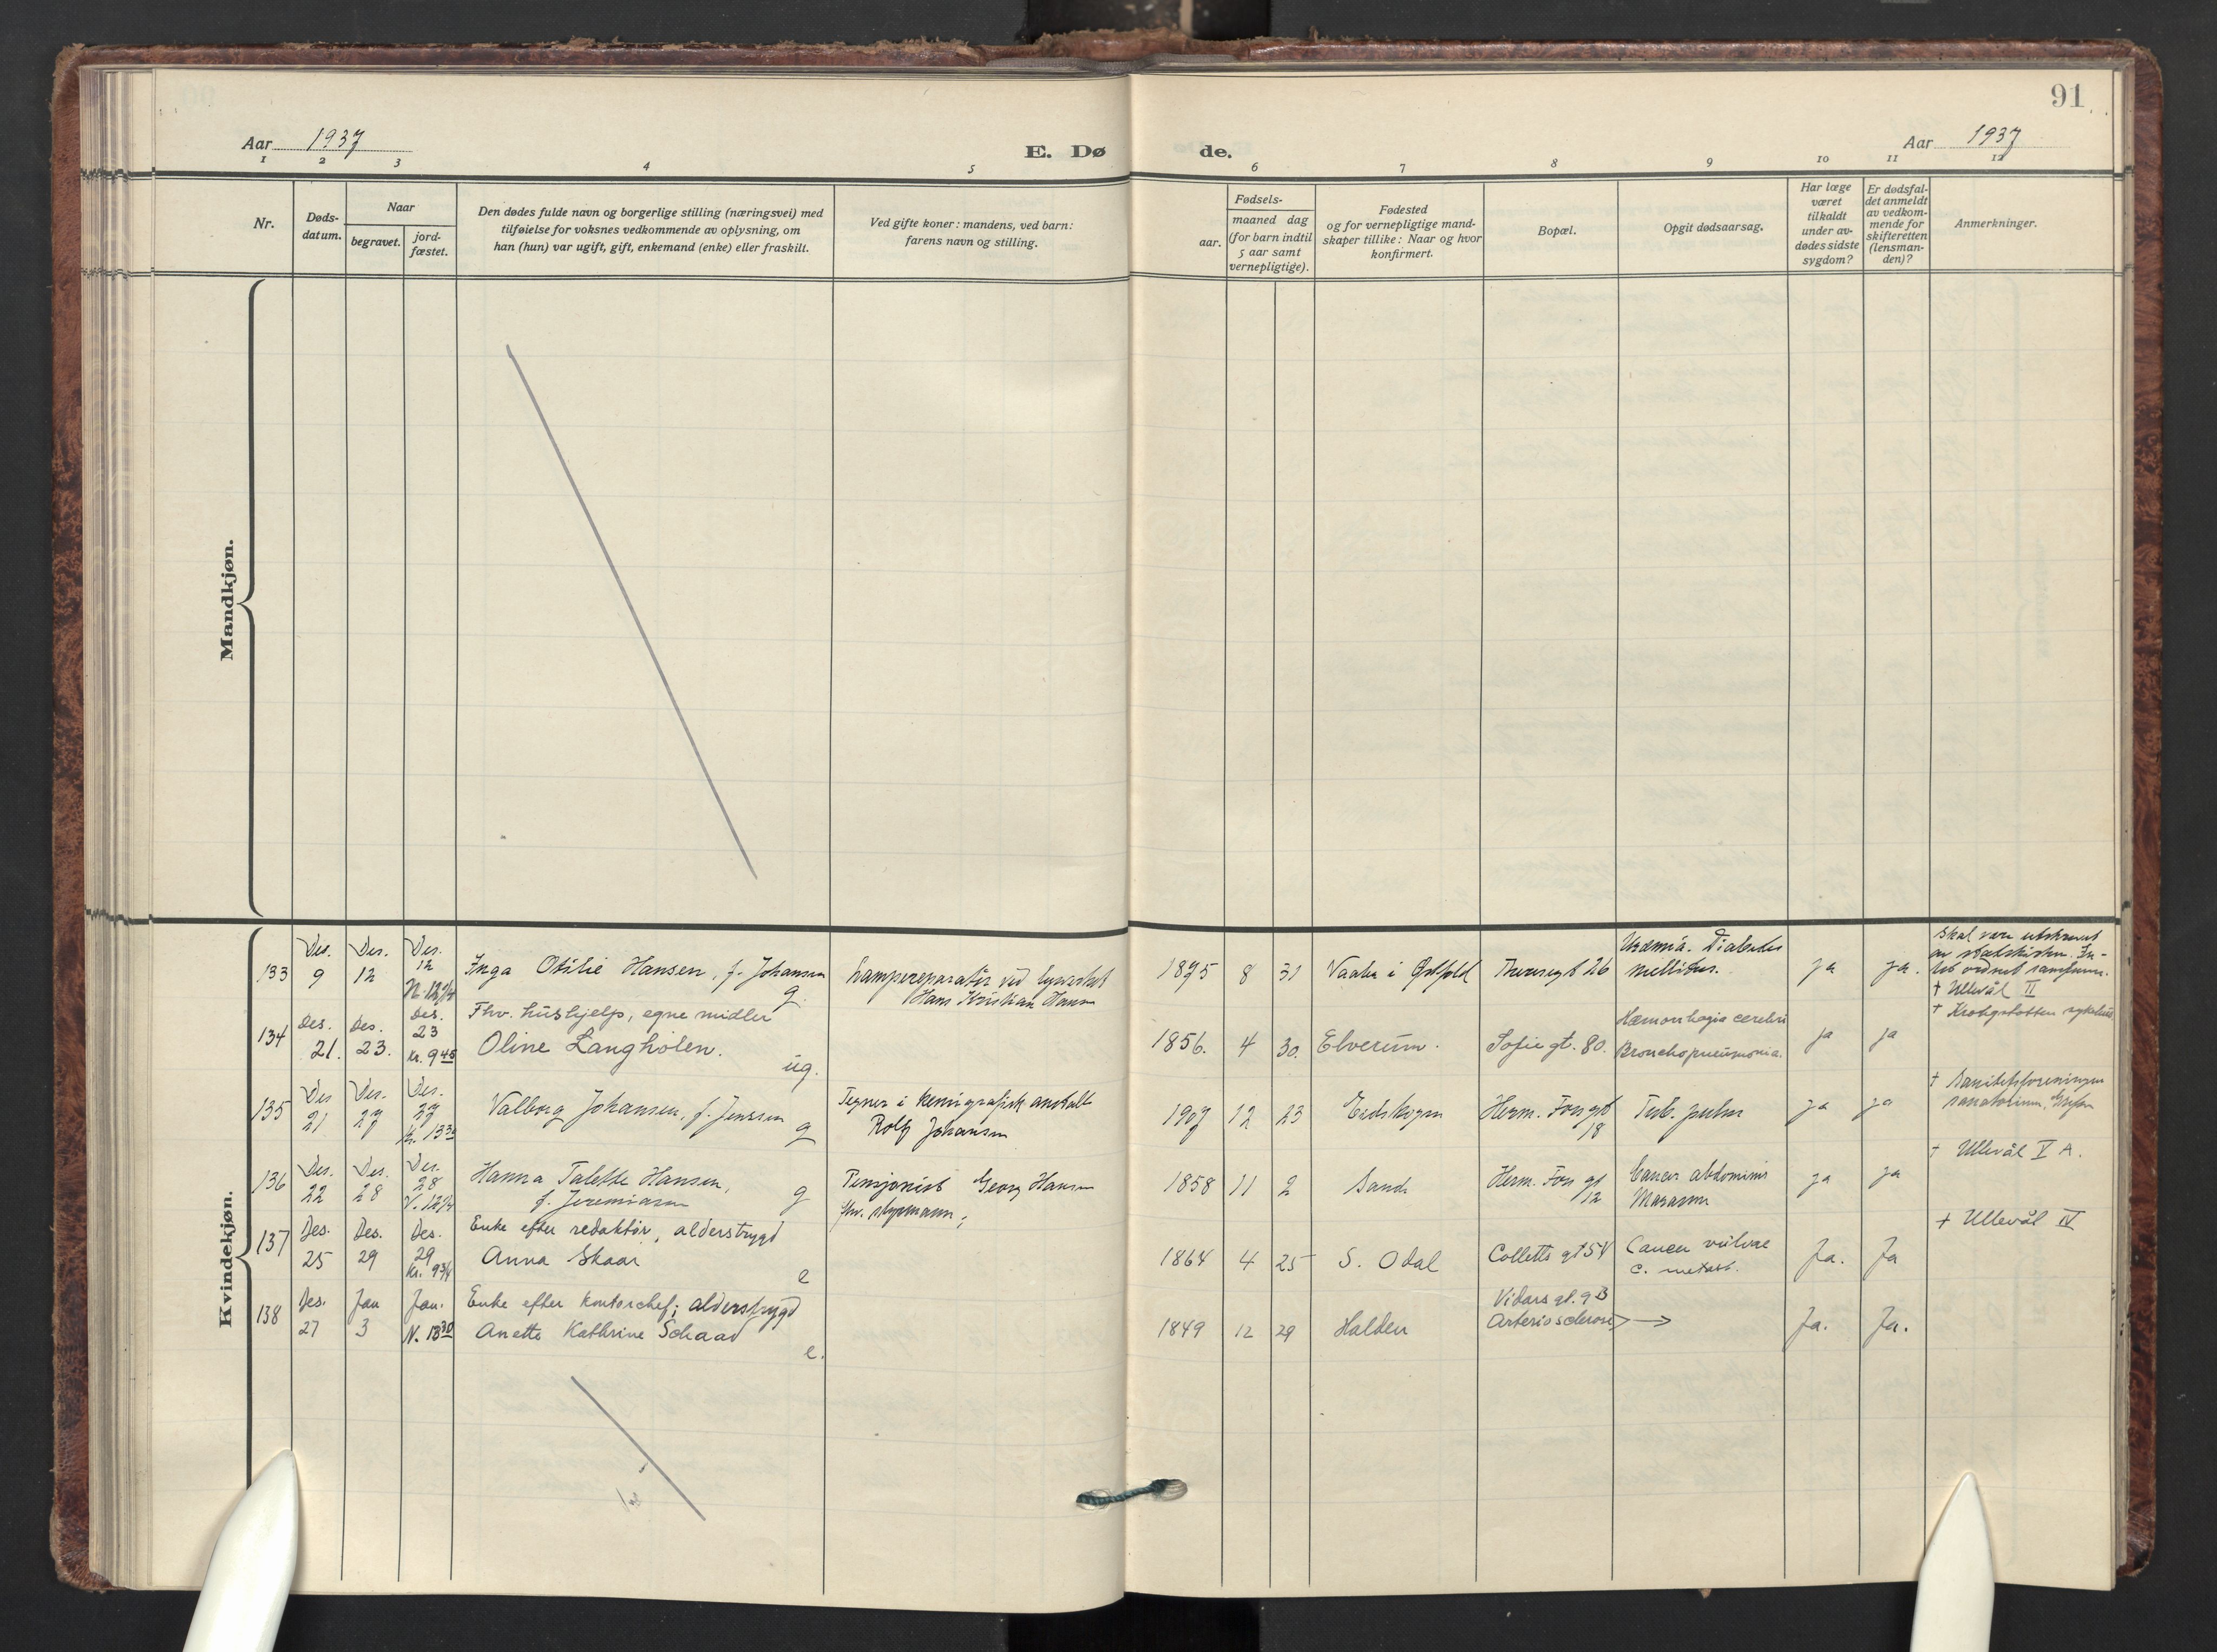 91
Aar 1937
E. Dø
de.
Aar 1937
1 2 3 4 5 6 7 8 9 10 11 12
Nr.
Døds-
datum.
Naar
begravet.
jord-
fæstet.
Den dødes fulde navn og borgerlige stilling (næringsvei) med
tilføielse for voksnes vedkommende av oplysning, om
han (hun) var ugift, gift, enkemand (enke) eller fraskilt.
Ved gifte koner: mandens, ved barn:
farens navn og stilling.
Fødsels-
aar.
maaned dag
(for barn indtil
5 aar samt
vernepligtige).
Fødested
og for vernepligtige mand-
skaper tillike: Naar og hvor
konfirmert.
Bopæl.
Opgit dødsaarsag.
Har læge
været
tilkaldt
under av-
dødes sidste
sygdom?
Er dødsfal-
det anmeldt
av vedkom-
mende for
skifteretten
(lensman-
den)?
Anmerkninger.
Mandkjøn.
Kvindekjøn.
133
Des.
9
Des.
12
Des.
12
Inga Otilie Hansen, f. Johansen
g.
Lampereparatør ved lysverket
Hans Kristian Hansen
1895 8 31
Vaaler i Østfold
Theresegt 26
Uræmia. Diabetes
mellitus.
ja
ja.
Skal være utskrevet
av statskirken.
† Ullevål II
134
Des.
21.
Des.
23.
Des.
23
kl. 9 45
Fhv. hushjelp, egne midler
Oline Langholen.
ug.
1856. 4 30.
Elverum.
Sofiegt. 80.
Hæmorrhagia cerebri
Bronchopneumonia.
ja
ja
† Krohgstøtten sykehus
135
Des
21
Des.
27
Des.
27
kl. 13 30
Valborg Johansen, f. Jenssen
g
Tegner i kemigrafisk anstalt
Rolf Johansen
1907 12 23
Eidskogen
Herm. Foss gt
18
Tub. pulm
ja
ja
† Sanitetsforeningens
sanatorium, Grefsen
136
Des.
22
Des.
28
Des.
28
V. 12 3/4
Hanna Talette Hansen,
f. Jeremiasen
g
Pensjonist Georg Hansen
fhv. styrmann;
1858 11 2
Sand
Herm. Foss gt
12
Cancer abdominis
Marasmus
ja
ja
† Ullevål V A.
137
Des.
25
Des.
29
Des.
29
kl. 9 3/4
Enke efter redaktør, alderstrygd
Anna Skaar
e
1864 4 25
S. Odal
Colletts gt 54
Cancer vulvae
c. metast.
Ja.
Ja
† Ullevål IV
138
Des.
27
Jan
3
Jan.
N. 13 30
Enke efter kontorchef; alderstrygd
Anette Kathrine Schaad
e.
1849 12 29
Halden
Vidars gt. 9 B
Arteriosclerose →
Ja.
Ja.